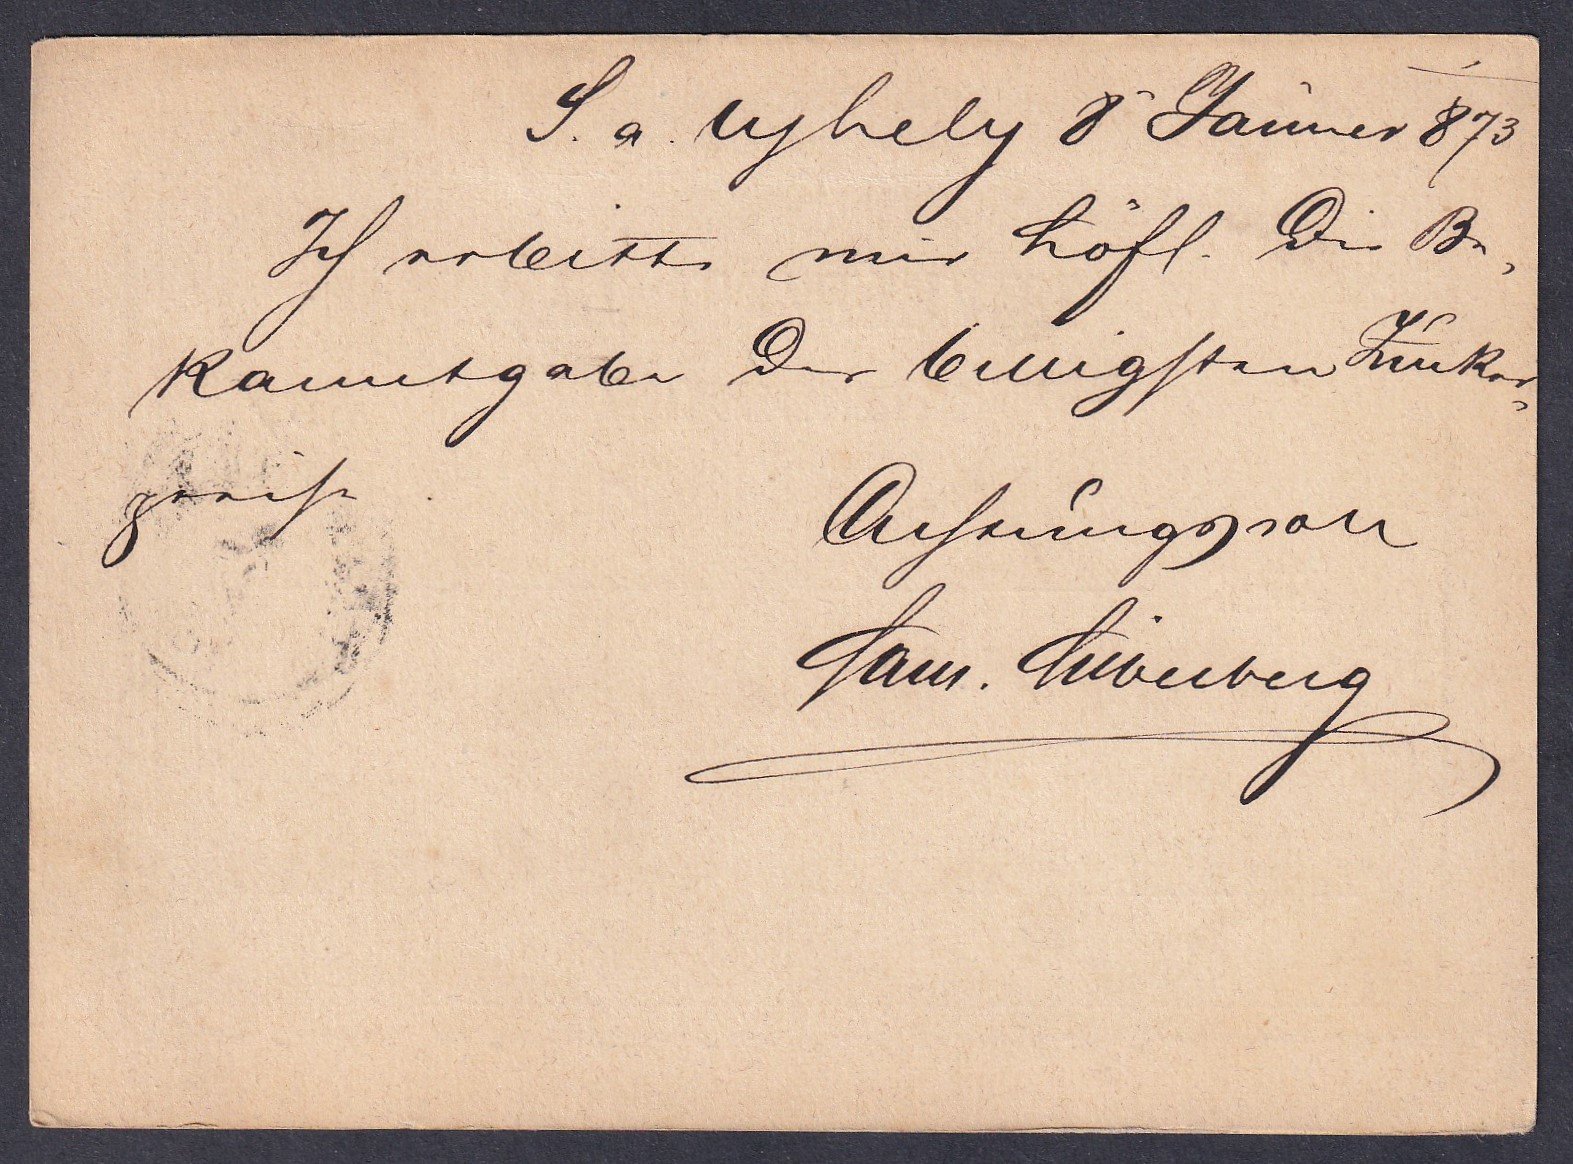 S. a. Ujhely 8 Jänner 873
Ich erbitte mir höfl. die Be,
kanntgabe der billigsten Zucker,
preise
Achtungsvoll
Sam. Silberberg